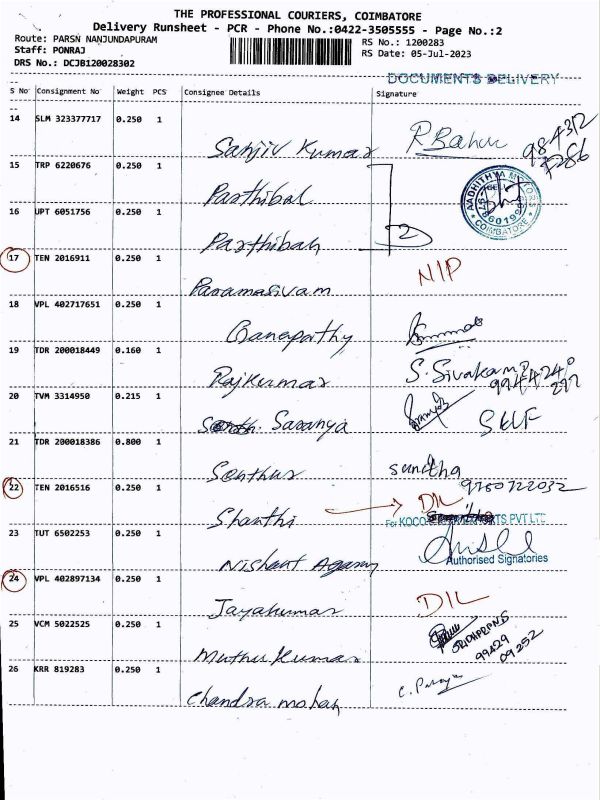 THE PROFESSIONAL COURIERS, COIMBATORE
Delivery Runsheet - PCR - Phone No.:0422-3505555 - Page No.:2
Route: PARSN NANJUNDAPURAM
RS No.: 1200283
Staff: PONRAJ
RS Date: 05-Jul-2023
DRS No.: DCJB120028302
DOCUMENTS DELIVERY
S No Consignment No Weight PCS Consignee Details Signature
14 SLM 323377717 0.250 1
Sanjiv Kumar
15 TRP 6220676 0.250 1
Parthiban
16 UPT 6051756 0.250 1
Parthiban
2
AADHITHYA
COIMBATORE
17 TEN 2016911 0.250 1
Paramasivam
NIP
18 VPL 402717651 0.250 1
Ganapathy
19 TDR 200018449 0.160 1
Rajkumar
S. Sivakami
20 TVM 3314950 0.215 1
Saranya
SKLF
21 TDR 200018386 0.800 1
Senthur
sunitha
9760722032
22 TEN 2016516 0.250 1
Shanthi
DIL
23 TUT 6502253 0.250 1
Nishant Agarwal
For KOCO
PVT LTD
Authorised Signatories
24 VPL 402897134 0.250 1
Jayakumar
DIL
25 VCM 5022525 0.250 1
Muthu Kumar
99429
09252
26 KRR 819283 0.250 1
Chandra mohan